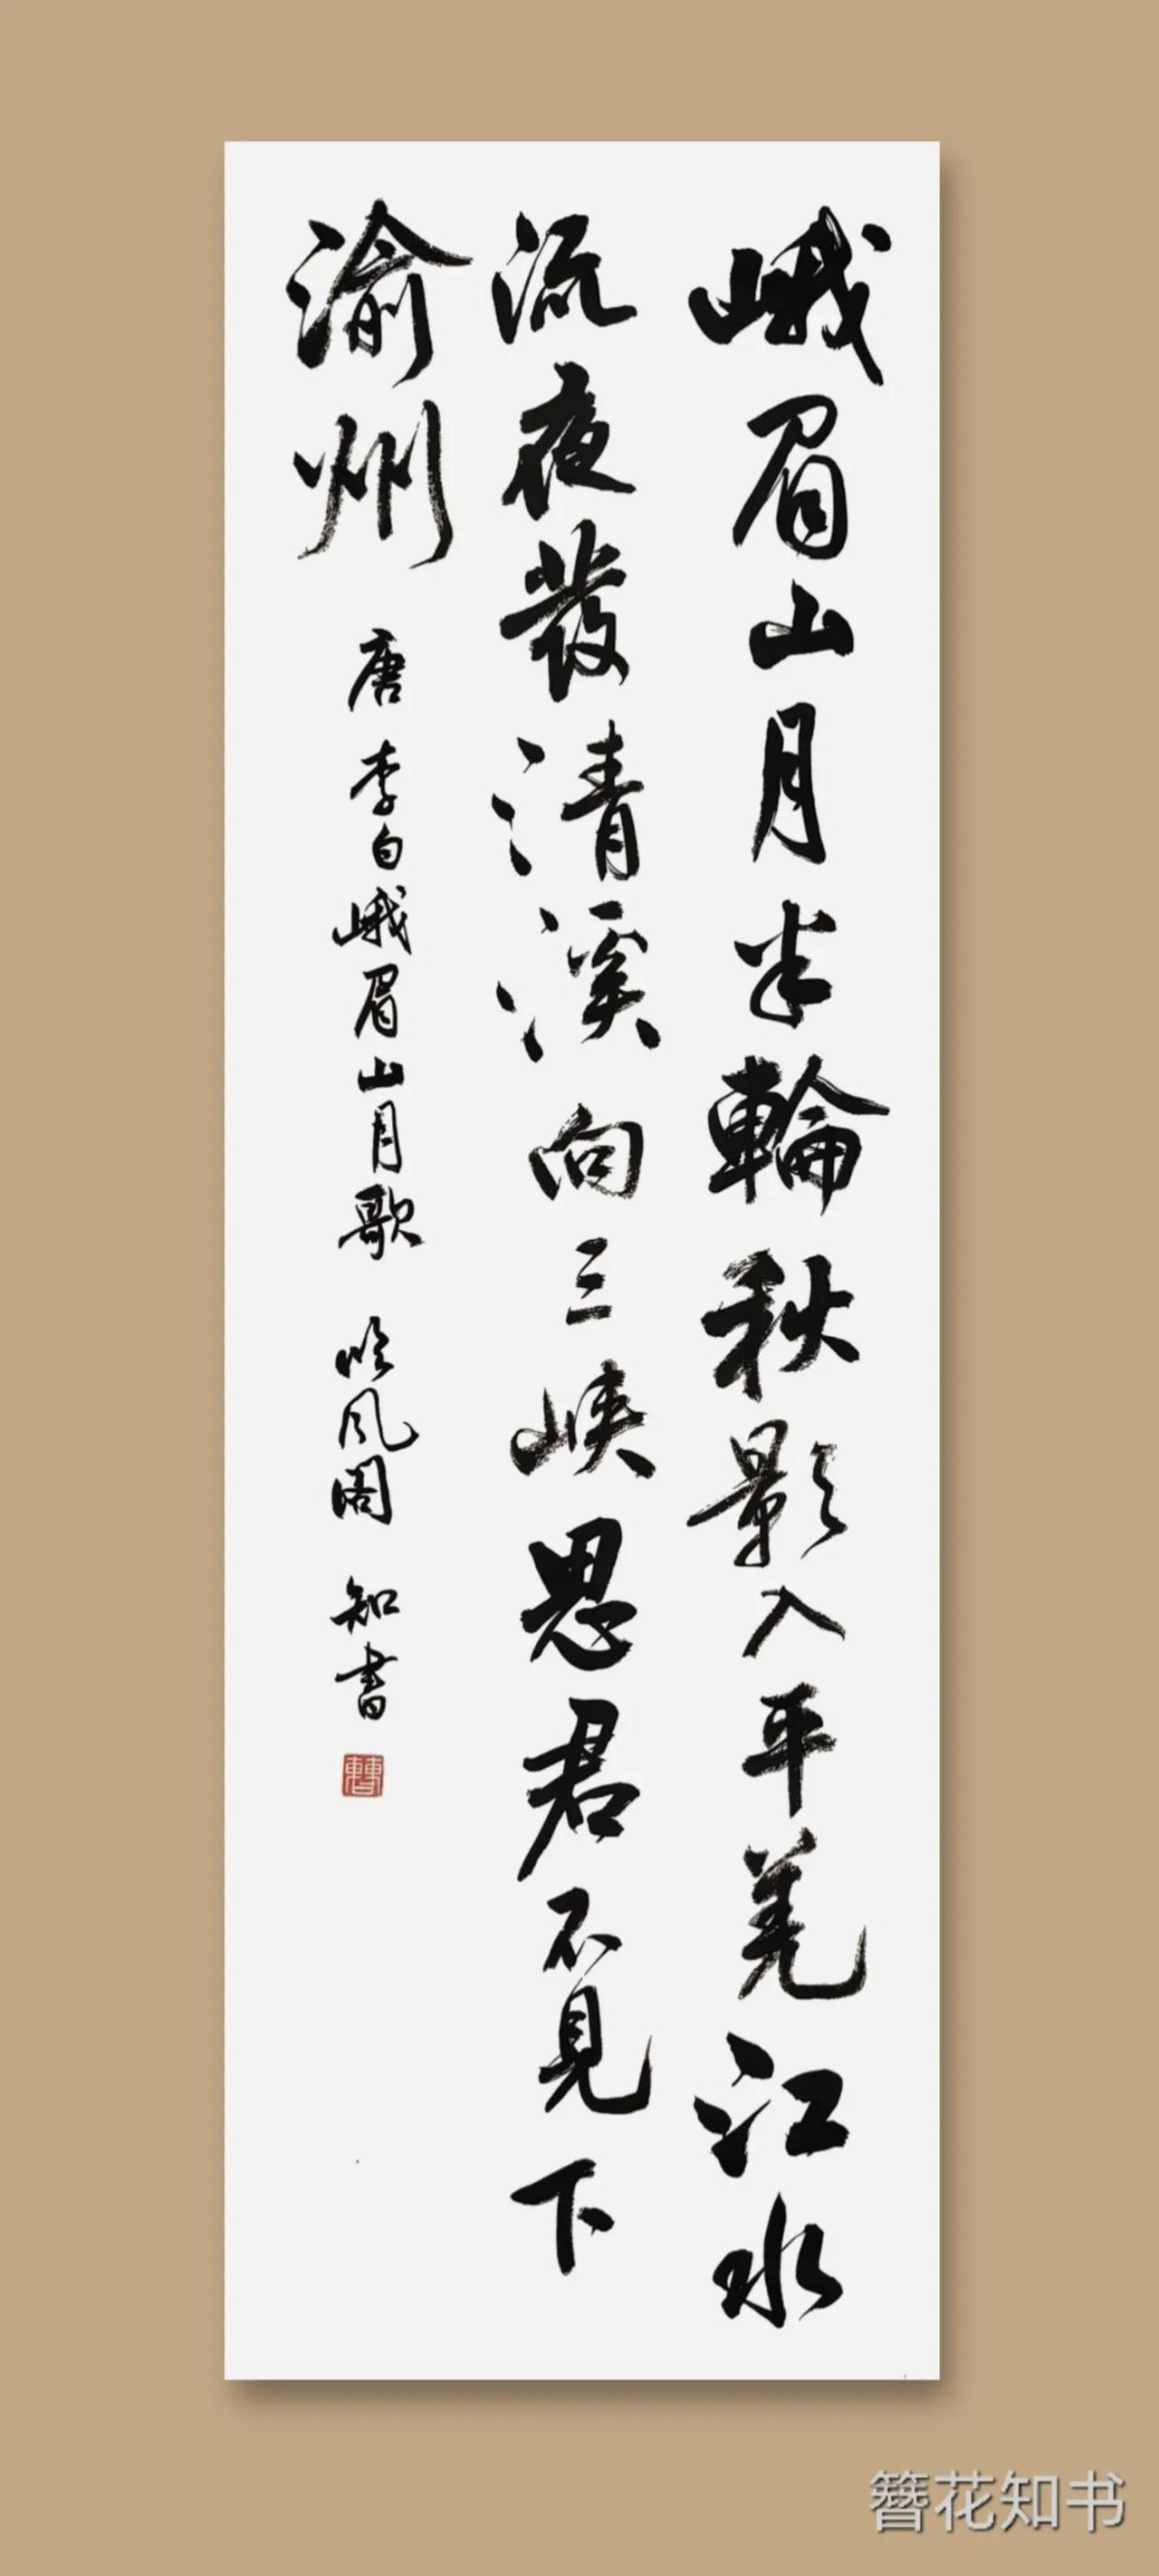 峨眉山月半輪秋影入平羌江水
流夜發清溪向三峽思君不見下
渝州
唐李白峨眉山月歌 吟风阁 知書
簪花知书